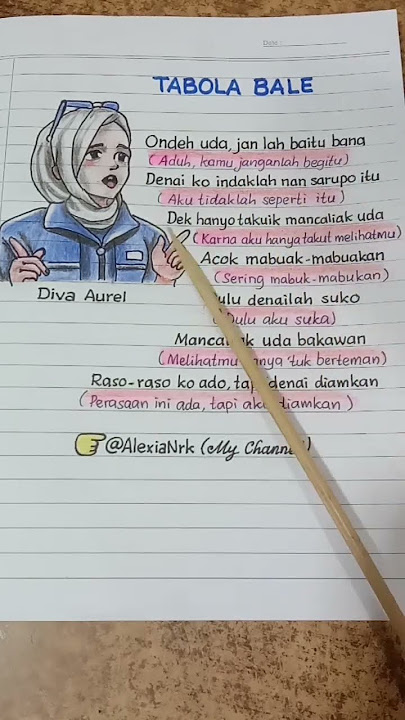 Date:
TABOLA BALE
Ondeh uda, jan lah baitu bana
(Aduh, kamu janganlah begitu)
Denai ko indaklah nan sarupo itu
(Aku tidaklah seperti itu)
Dek hanyo takuik mancaliak uda
(Karna aku hanya takut melihatmu)
Acok mabuak-mabuakan
(Sering mabuk-mabukan)
denailah suko
aku suka)
uda bakawan
(Melihatmu 'tuk berteman)
Raso-raso ko ado, denai diamkan
(Perasaan ini ada, tapi diamkan)
Diva Aurel
@AlexiaNrk (My